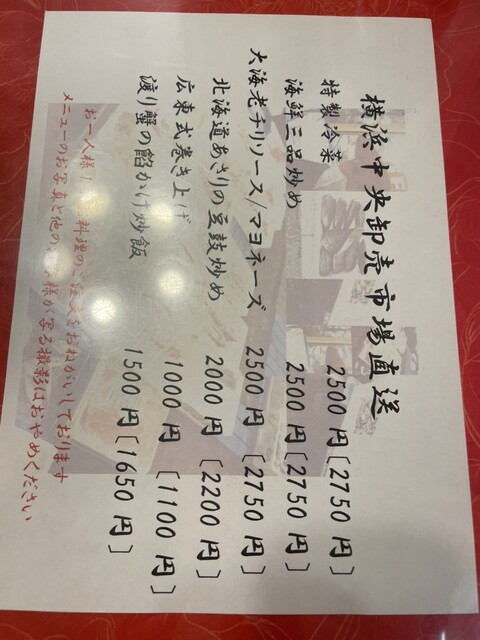 横浜中央卸売市場直送
特製冷菜 2500円〔2750円〕
海鮮三品炒め 2500円〔2750円〕
大海老チリソース/マヨネーズ 2500円〔2750円〕
北海道あさりの豆鼓炒め 2000円〔2200円〕
広東式巻き上げ 1000円〔1100円〕
渡り蟹の餡かけ炒飯 1500円〔1650円〕
お一人様 料理のご注文をおねがいしております
メニューのお写真と他の 様が写る撮影はおやめください